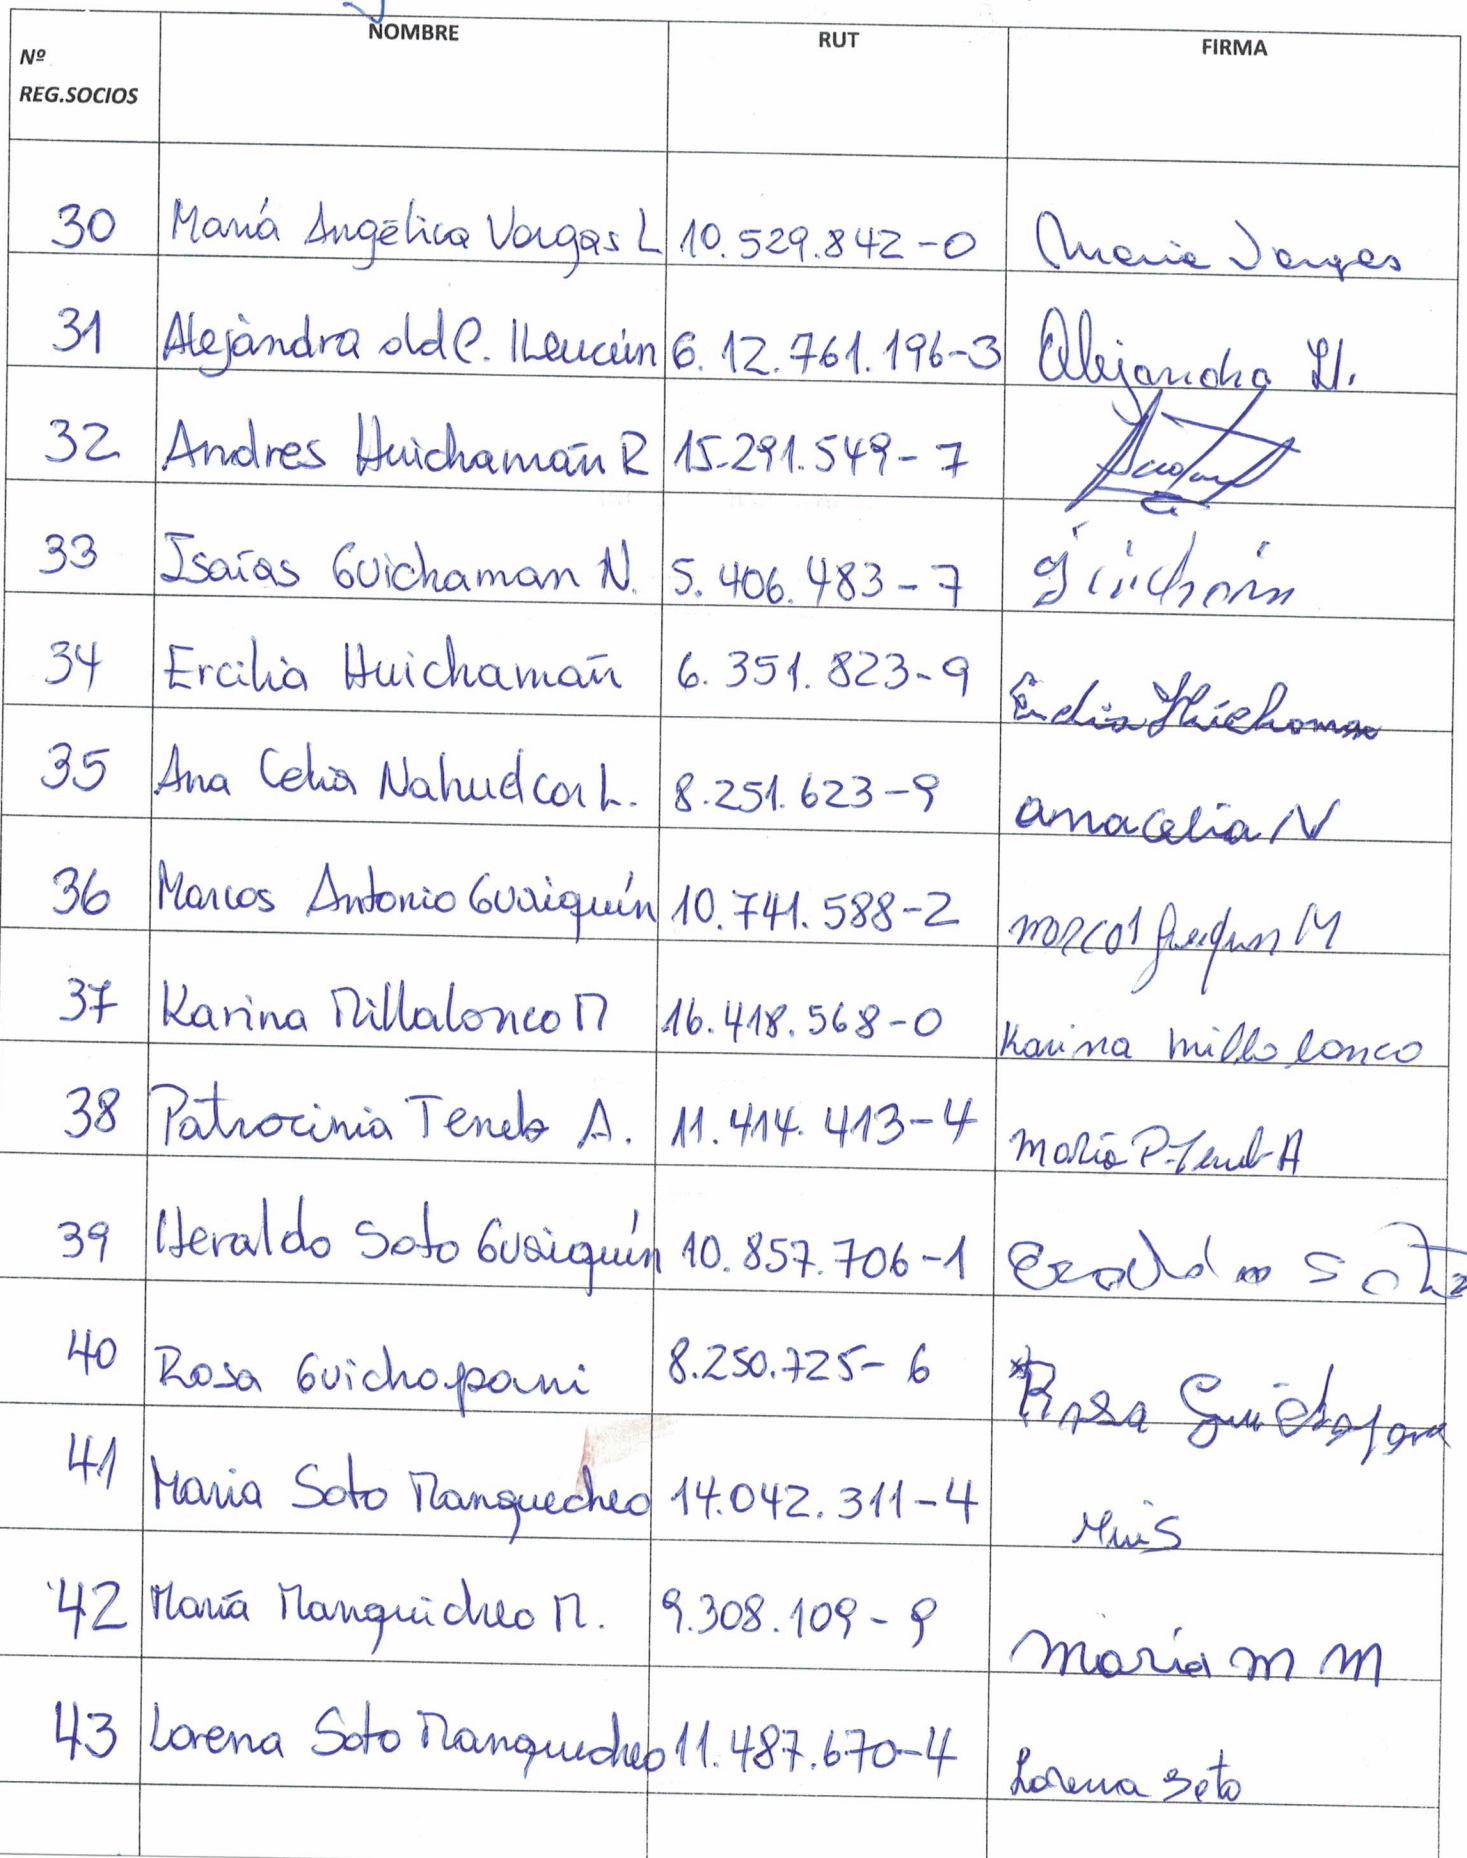 Nº REG.SOCIOS NOMBRE RUT FIRMA
30 María Angélica Vargas L 10.529.842-0 Maria Vargas
31 Alejandra del C. Lleucún 6. 12.761.196-3 Alejandra Ll.
32 Andres Huichamañ R 15.291.549-7
33 Isaías Guichaman N. 5.406.483-7
34 Ercilia Huichamañ 6.351.823-9 Ercilia Huichaman
35 Ana Celia L. 8.251.623-9 anacelia N
36 Marcos Antonio Gueiquín 10.741.588-2 marcos M
37 Karina Millalonco M 16.418.568-0 Karina millalonco
38 Patrocinia Teneb A. 11.414.413-4 maria P. Teneb A
39 Heraldo Soto Gueiquín 10.857.706-1 Eraldo Soto
40 Rosa Guichapani 8.250.725-6 Rosa Guichapani
41 Maria Soto Manquecheo 14.042.311-4
42 María Manquicheo M. 9.308.109-9 maría m m
43 Lorena Soto Manquecheo 11.487.670-4 Lorena Soto